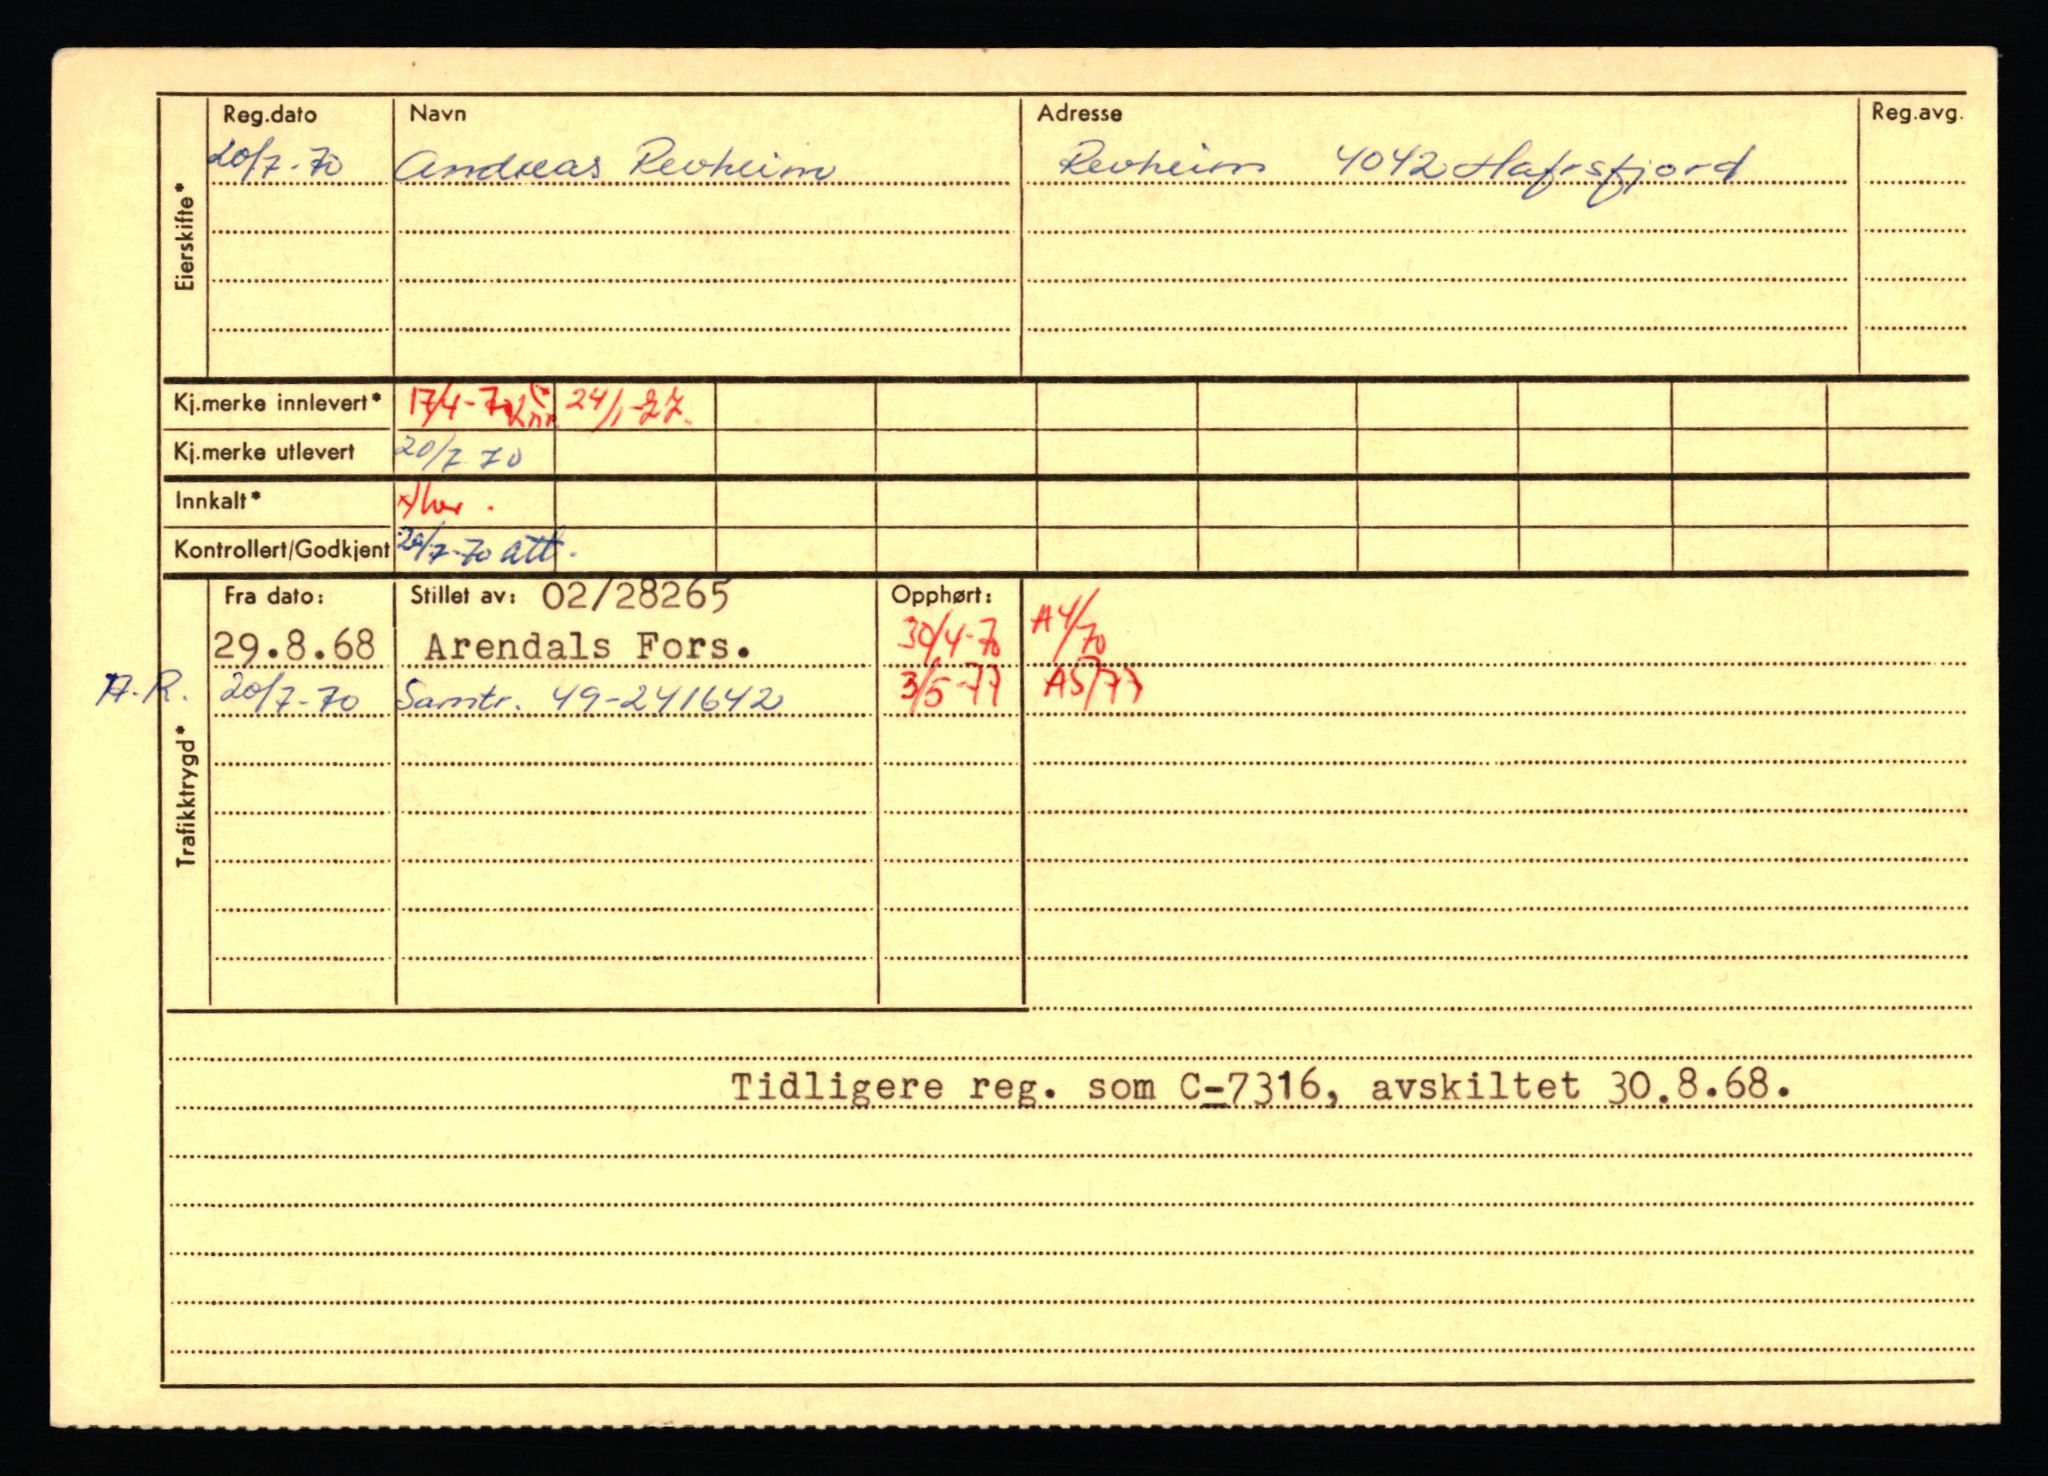 Reg.dato Navn Adresse Reg.avg.
20/7-70 Andreas Revheim Revheim 4042 Hafrsfjord
Eierskifte*
Kj.merke innlevert* 17/4-70 24/1-77.
Kj.merke utlevert 20/7 70
Innkalt*
Kontrollert/Godkjent 20/7-70 att.
Fra dato: Stillet av: 02/28265 Opphørt:
29.8.68 Arendals Fors. 30/4-70 A4/70
A.R. 20/7-70 Samtr. 49-241642 3/5-77 A5/77
Trafikktrygd*
Tidligere reg. som C-7316, avskiltet 30.8.68.